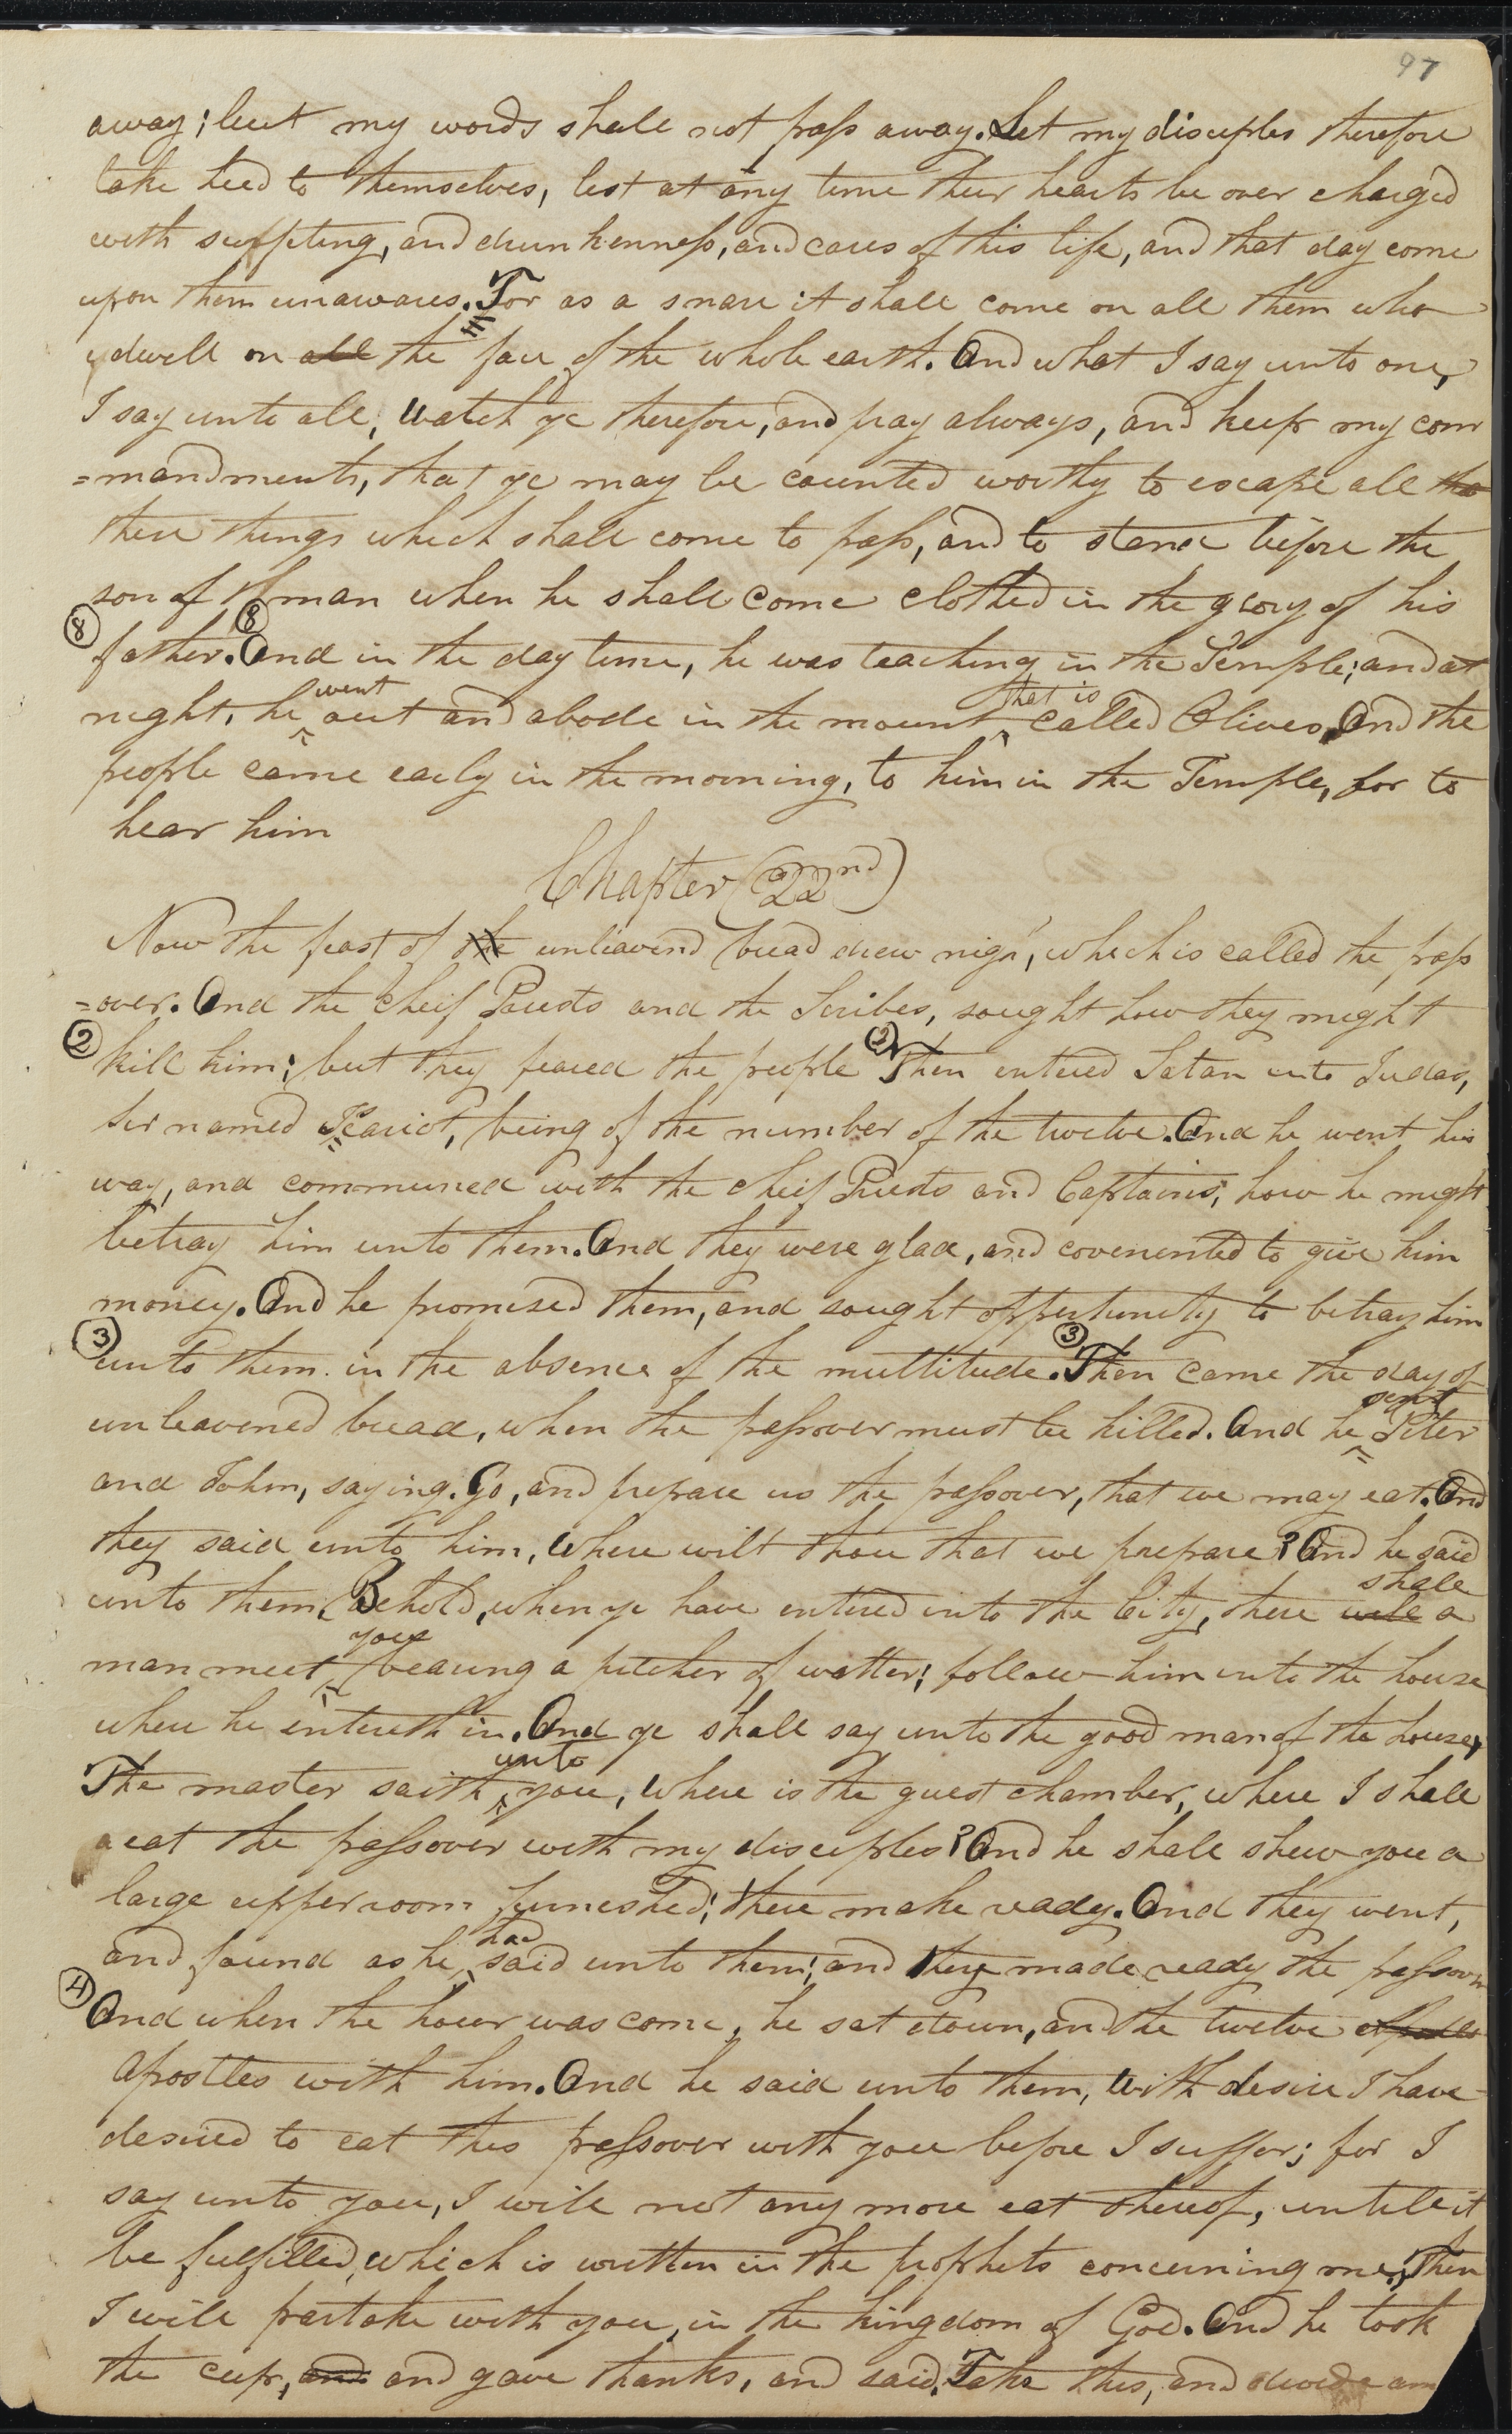 97
away; but my words shall not pass away. Let my disciples therefore
take heed to themselves, lest at any time their hearts be over charged
with surfiting, and drunkenness, and cares of this life, and that day come
upon them unawares. For as a snare it shall come on all them who
dwell on all the face of the whole earth. And what I say unto one,
I say unto all, Watch ye therefore, and pray always, and keep my com
=mandments, that ye may be counted worthy to escape all tho
these things which shall come to pass, and to stand before the
son of man when he shall come clothed in the glory of his
8 father. 8 And in the day time, he was teaching in the Temple; and at
night, he went out and abode in the mount that is called Olives. And the
people came early in the morning, to him in the Temple, for to
hear him
Chapter (22nd)
Now the feast of the unleavend bread drew nigh, which is called the pass
=over. And the cheif Priests and the Scribes, sought how they might
2 kill him; but they feared the people 2 Then entered Satan into Judas,
sir named Iscariot, being of the number of the twelve. And he went his
way, and communed with the cheif Priests and Captains, how he might
betray him unto them. And they were glad, and covenented to give him
money. And he promised them, and sought oppertunity to betray him
3 unto them in the absence of the multitude. 3 Then came the day of
unleavened bread, when the passover must be killed. And he sent Peter
and John, saying. Go, and prepare us the passover, that we may eat. And
they said unto him, Where wilt thou that we prepare? And he said
unto them, Behold, when ye have entered into the City, there will shall a
man meet you bearing a pitcher of watter; follow him into the house
where he entereth in. And ye shall say unto the good man of the house,
The master saith unto you, Where is the guest chamber, where I shall
eat the passover with my disciples? And he shall shew you a
large upper room furnished; there make ready. And they went,
and found as he had said unto them; and they made ready the passover
4 And when the hour was come, he sat down, and the twelve
apostles with him. And he said unto them, With desire I have
desired to eat this passover with you before I suffer; for I
say unto you, I will not any more eat thereof, untill it
be fulfilled, which is written in the prophets concerning me; Then
I will partake with you, in the kingdom of God. And he took
the cup, and and gave thanks, and said, Take this, and divide am